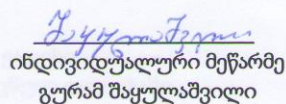 ინდივიდუალური მეწარმე
გურამ შაყულაშვილი